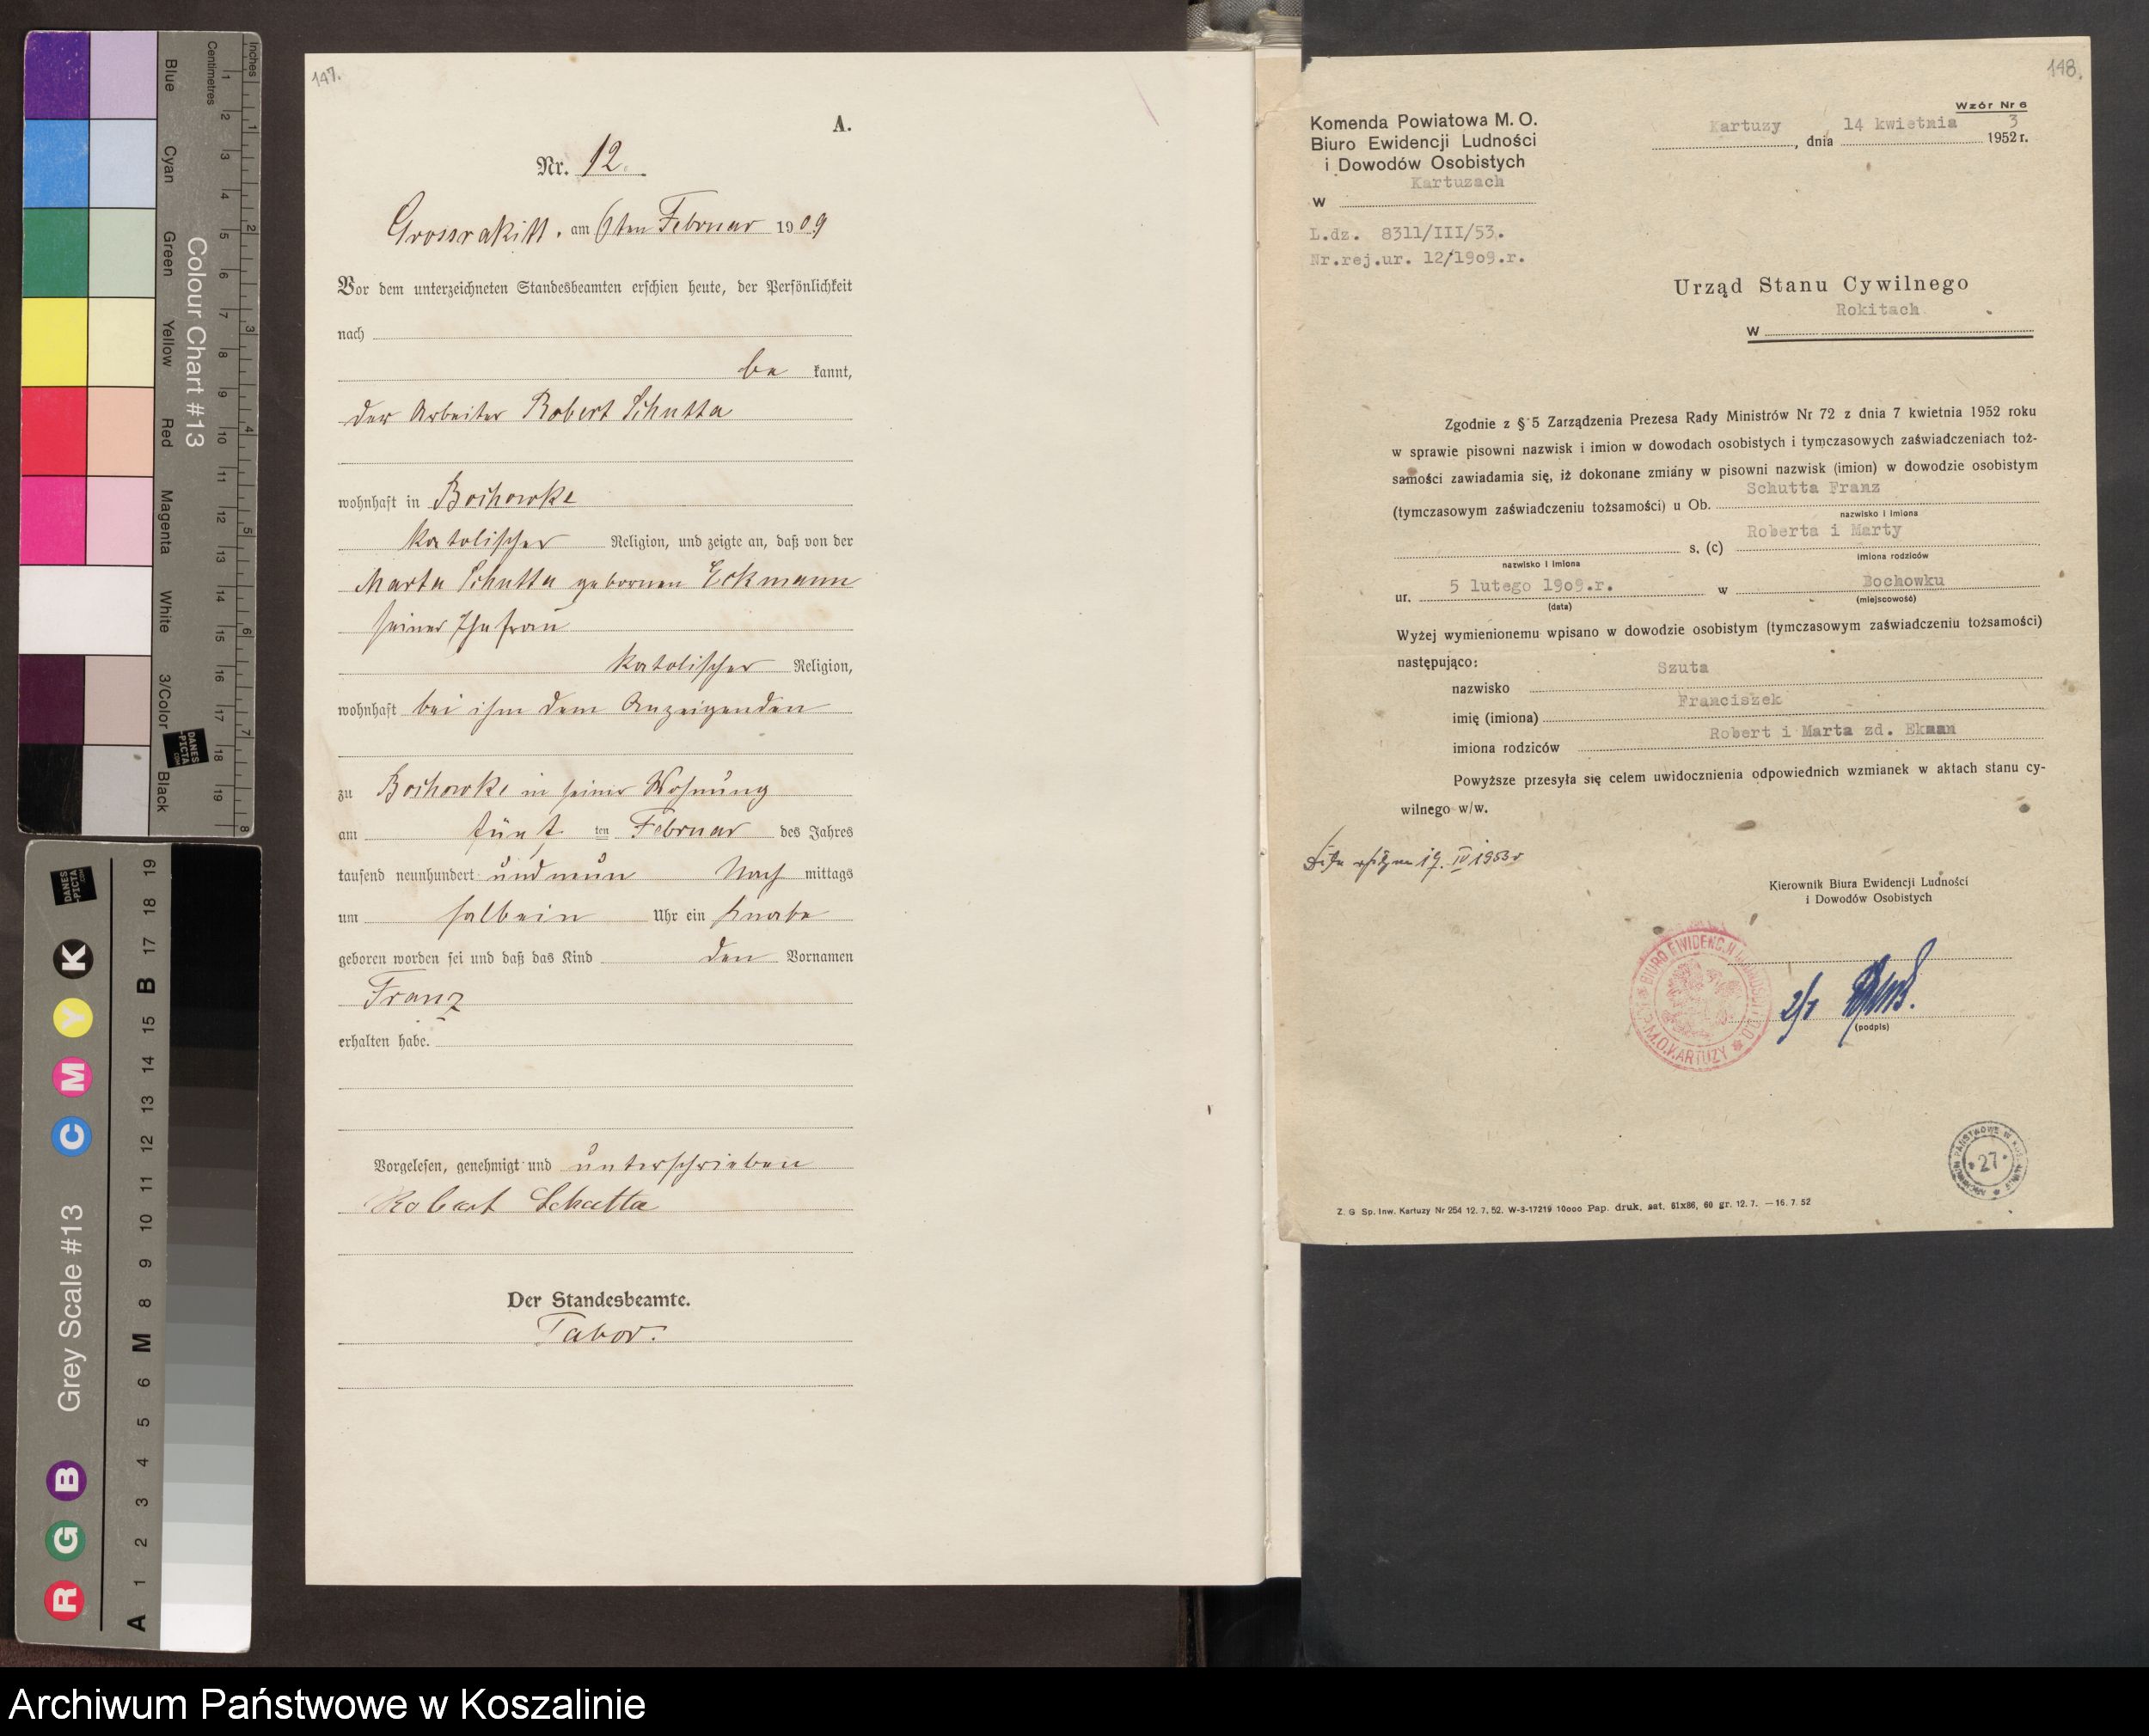 147.
A.
Nr. 12.
Grossrakitt, am 6ten Februar 1909
Vor dem unterzeichneten Standesbeamten erschien heute, der Persönlichkeit
nach
be kannt,
der Arbeiter Robert Schutta
wohnhaft in Bochowke
katolischer Religion, und zeigte an, daß von der
Marta Schutta gebornen Eckmann
seiner Ehefrau
katolischer Religion,
wohnhaft bei ihm dem Anzeigenden
zu Bochowke in seiner Wohnung
am fünf ten Februar des Jahres
tausend neunhundert undneun Nach mittags
um halbein Uhr ein Knabe
geboren worden sei und daß das Kind den Vornamen
Franz
erhalten habe.
Vorgelesen, genehmigt und unterschrieben
Robert Schutta
Der Standesbeamte.
Tabor.
148.
Wzór Nr 6
Komenda Powiatowa M. O.
Biuro Ewidencji Ludności
i Dowodów Osobistych
w Kartuzach
Kartuzy, dnia 14 kwietnia 1952 r.
3
L.dz. 8311/III/53.
Nr.rej.ur. 12/1909.r.
Urząd Stanu Cywilnego
w Rokitach
Zgodnie z § 5 Zarządzenia Prezesa Rady Ministrów Nr 72 z dnia 7 kwietnia 1952 roku
w sprawie pisowni nazwisk i imion w dowodach osobistych i tymczasowych zaświadczeniach toż-
samości zawiadamia się, iż dokonane zmiany w pisowni nazwisk (imion) w dowodzie osobistym
(tymczasowym zaświadczeniu tożsamości) u Ob. Schutta Franz
nazwisko i imiona
s, (c) Roberta i Marty
nazwisko i imiona imiona rodziców
ur. 5 lutego 1909.r. w Bochowku
(data) (miejscowość)
Wyżej wymienionemu wpisano w dowodzie osobistym (tymczasowym zaświadczeniu tożsamości)
następująco:
nazwisko Szuta
imię (imiona) Franciszek
imiona rodziców Robert i Marta zd. Ekman
Powyższe przesyła się celem uwidocznienia odpowiednich wzmianek w aktach stanu cy-
wilnego w/w.
19. IV 1953 r
Kierownik Biura Ewidencji Ludności
i Dowodów Osobistych
BIURO EWIDENCJI LUDNOŚCI
M.O. KARTUZY
(podpis)
ARCHIWUM PAŃSTWOWE W KOSZALINIE
27
Z. G Sp. Inw. Kartuzy Nr 254 12. 7. 52. W-3-17219 10000 Pap. druk. sat. 61x86, 60 gr. 12. 7. — 16. 7. 52
Colour Chart #13
Blue
Cyan
Green
Yellow
Red
Magenta
White
3/Color
Black
Centimetres
Inches
1 2 3 4 5 6 7 8 9 10 11 12 13 14 15 16 17 18 19
1 2 3 4 5 6 7 8
DANES
-PICTA
.COM
Grey Scale #13
R G B C M Y K
A 1 2 3 4 5 6 M 8 9 10 11 12 13 14 15 B 17 18 19
DANES
-PICTA
.COM
Archiwum Państwowe w Koszalinie